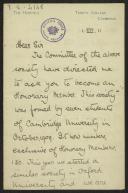 THE HERETICS
TRINITY COLLEGE,
CAMBRIDGE.
Dear Sir
The Committee of the above
society have directed me
to ask you to become an
honorary member. This society
was formed by seven students
of Cambridge University in
October 1909. It now numbers,
exclusive of Honorary Members,
150. This year we started a
similar society in Oxford
University and we are